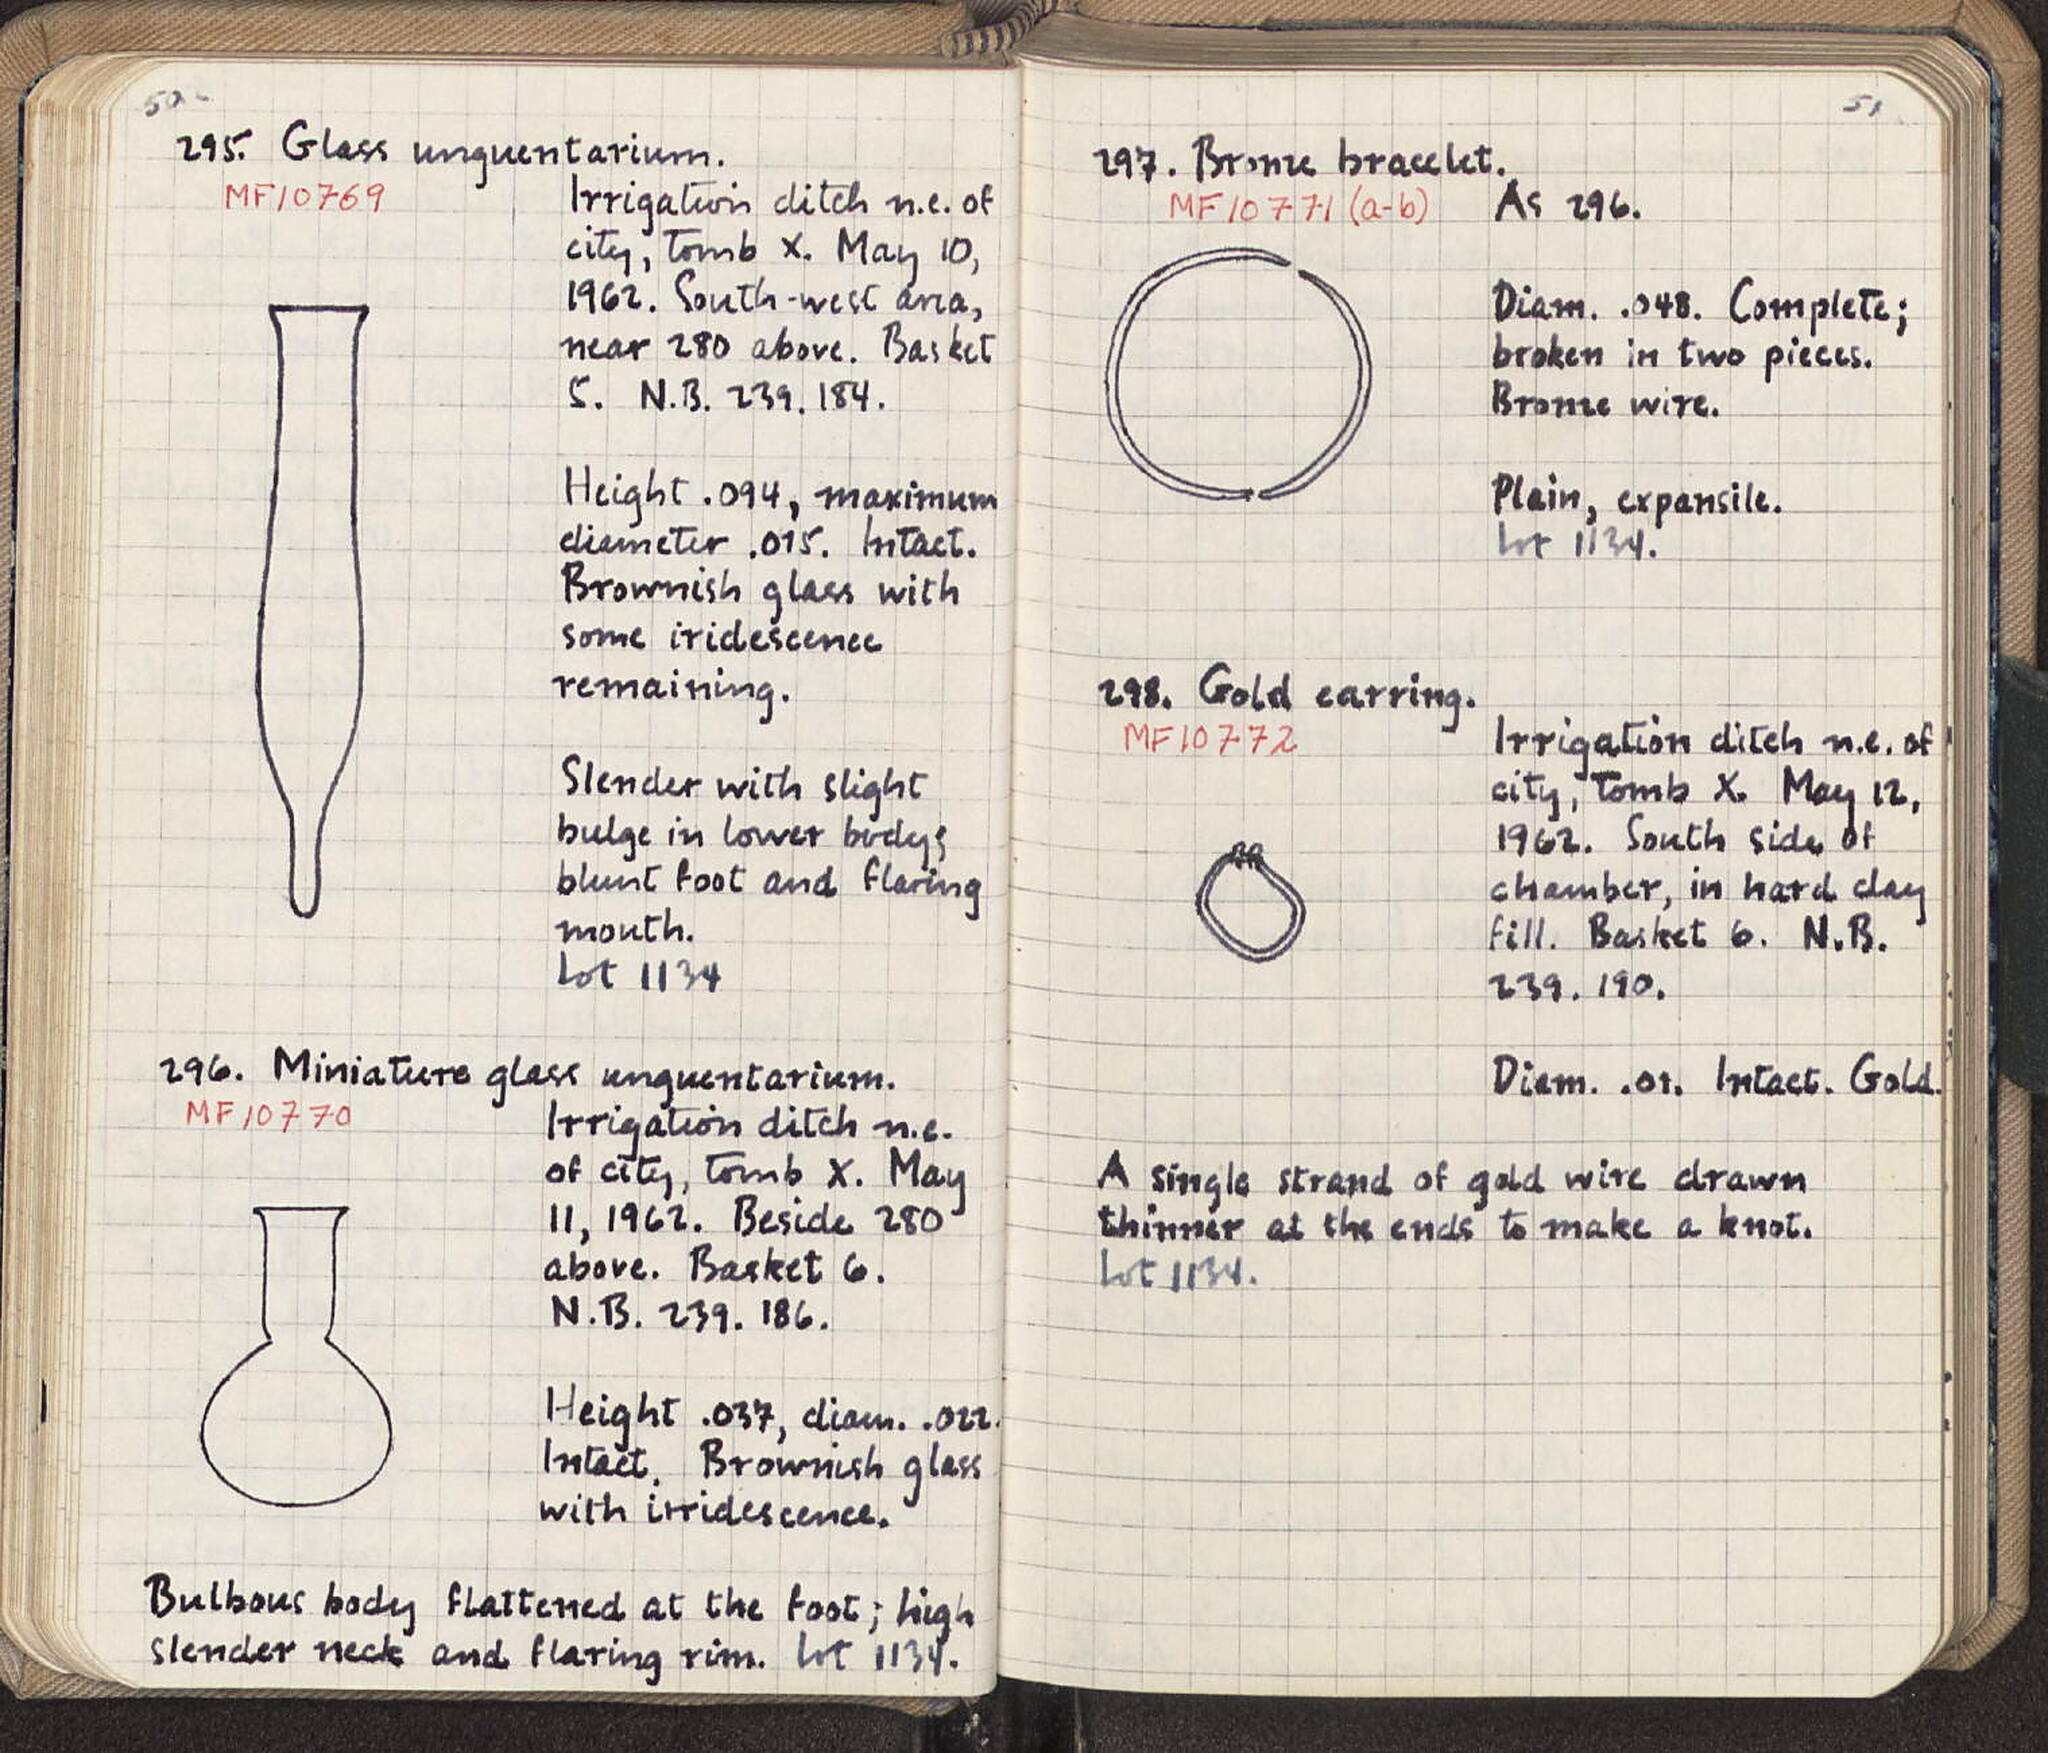 50
295. Glass unguentarium.
MF10769
Irrigation ditch n.e. of
city, tomb X. May 10,
1962. South-west area,
near 280 above. Basket
5. N.B. 239. 184.
Height .094, maximum
diameter .015. Intact.
Brownish glass with
some iridescence
remaining.
Slender with slight
bulge in lower body;
blunt foot and flaring
mouth.
Lot 1134
296. Miniature glass unguentarium.
MF10770
Irrigation ditch n.e.
of city, tomb X. May
11, 1962. Beside 280
above. Basket 6.
N.B. 239. 186.
Height .037, diam. .022.
Intact. Brownish glass
with irridescence.
Bulbous body flattened at the foot; high
slender neck and flaring rim. Lot 1134.
51
297. Bronze bracelet.
MF10771 (a-b)
As 296.
Diam. .048. Complete;
broken in two pieces.
Bronze wire.
Plain, expansile.
Lot 1134.
298. Gold earring.
MF10772
Irrigation ditch n.e. of
city, tomb X. May 12,
1962. South side of
chamber, in hard clay
fill. Basket 6. N.B.
239. 190.
Diam. .01. Intact. Gold.
A single strand of gold wire drawn
thinner at the ends to make a knot.
Lot 1134.